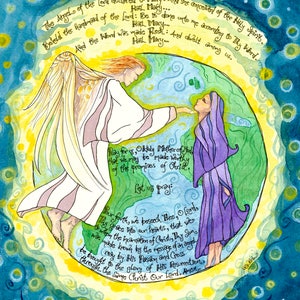 The Angel of the Lord declared
conceived of the Holy Spirit.
Hail Mary...
Behold the handmaid of the Lord: Be it done unto me according to Thy Word.
Hail Mary...
And the Word was made Flesh: And dwelt among us.
Hail Mary...
Pray for us, O Holy Mother of God,
that we may be made worthy
of the promises of Christ.
Let us pray:
forth, we beseech Thee, O Lord,
into our hearts, that we
the Incarnation of Christ, Thy Son,
made known by the message of an angel
by His Passion and Cross
be brought to the glory of His Resurrection
through the same Christ Our Lord. Amen.